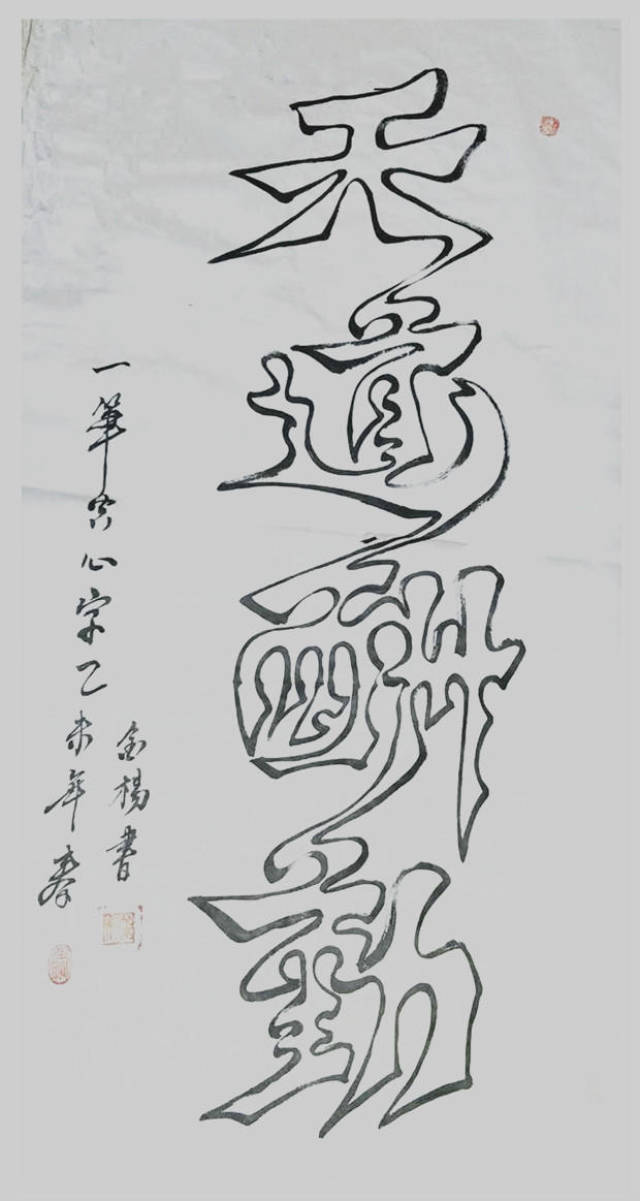 天道酬勤
一筆空心字乙未年春
金楊書